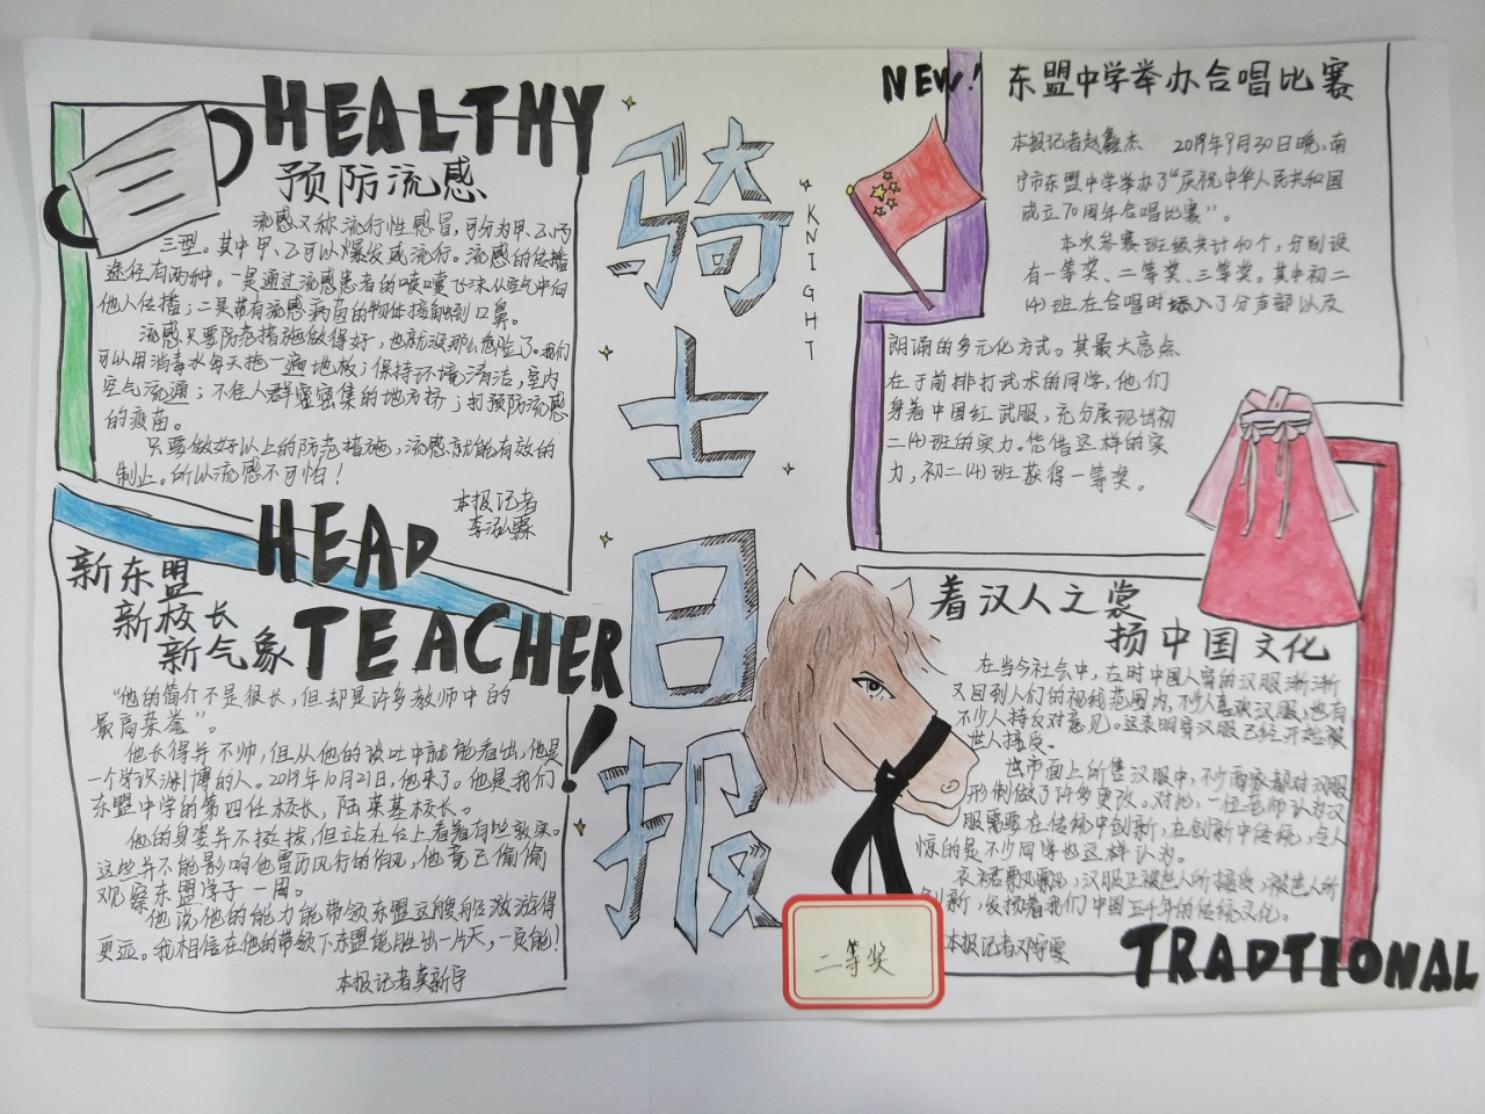 HEALTHY
预防流感
流感又称流行性感冒，可分为甲、乙、丙
三型。其中甲、乙可以爆发成流行。流感的传播
途径有两种。一是通过流感患者的喷嚏飞沫从空气中向
他人传播；二是带有流感病菌的物体接触到口鼻。
流感只要防范措施做得好，也就没那么危险了。我们
可以用消毒水每天拖一遍地板；保持环境清洁，室内
空气流通；不在人群密集的地方挤；打预防流感
的疫苗。
只要做好以上的防范措施，流感就能有效的
制止。所以流感不可怕！
本报记者
李泓霖
HEAD
TEACHER!
新东盟
新校长
新气象
“他的简介不是很长，但却是许多教师中的
最高荣誉”。
他长得并不帅，但从他的谈吐中就能看出，他是
一个学识渊博的人。2019年10月21日，他来了。他是我们
东盟中学的第四任校长，陆荣基校长。
他的身姿并不挺拔，但立站在台上看着有些敦实。
这些并不能影响他雷厉风行的作风，他竟已偷偷
观察东盟学子一周。
他说，他的能力能带领东盟这艘船激游得
更远。我相信在他的带领下东盟能胜出一片天，一定能！
本报记者莫新宇
骑士日报
KNIGHT
NEW!
东盟中学举办合唱比赛
本报记者赵鑫杰 2019年9月30日晚，南
宁市东盟中学举办了“庆祝中华人民共和国
成立70周年合唱比赛”。
本次参赛班级共计40个，分别设
有一等奖、二等奖、三等奖。其中初二
(4)班在合唱时添入了分声部以及
朗诵的多元化方式。其最大亮点
在于前排打武术的同学，他们
身着中国红武服，充分展现出初
二(4)班的实力。凭借这样的实
力，初二(4)班获得一等奖。
着汉人之裳
扬中国文化
在当今社会中，古时中国人穿的汉服渐渐
又回到人们的视线范围内，不少人喜欢汉服，也有
不少人持反对意见。这表明穿汉服已经开始被
世人接受。
也市面上所售汉服中，不少商家都对汉服
形制做了许多更改。对此，一位老师认为汉
服需要在传统中创新，在创新中传统，令人
惊的是不少同学也这样认为。
衣裙飘飘，汉服正被世人所接受，被世人所
创新，发扬着我们中国五千年的传统文化。
本报记者邓
TRADTIONAL
二等奖